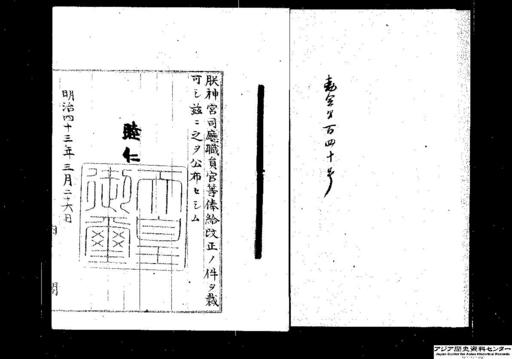 勅令第百四十号
朕神宮司廳職員官等俸給改正ノ件ヲ裁
可シ茲ニ之ヲ公布セシム
睦仁
天皇御璽
明治四十三年三月二十六日
内閣
アジア歴史資料センター
Japan Center for Asian Historical Records